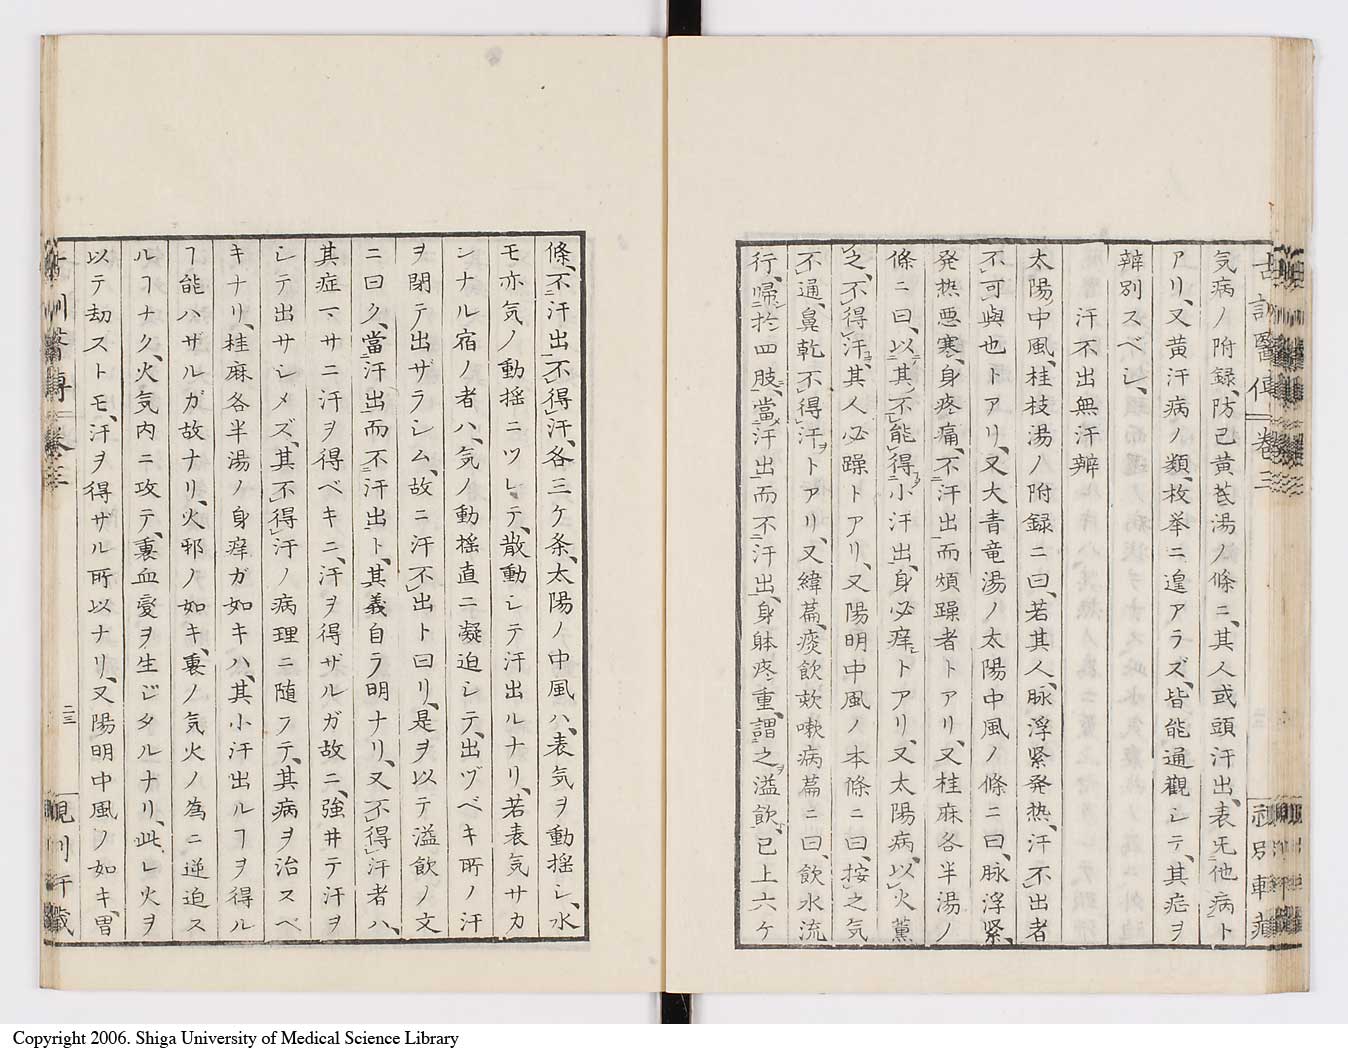 古訓醫傳 卷三
気病ノ附録、防已黄芪湯ノ條ニ、其人或頭汗出、表无他病ト
アリ、又黄汗病ノ類、枚挙ニ遑アラズ、皆能通觀シテ、其症ヲ
辨別スベシ、
汗不出無汗辨
太陽中風、桂枝湯ノ附録ニ曰、若其人、脉浮緊発熱、汗不出者
不可與也トアリ、又大青竜湯ノ太陽中風ノ條ニ曰、脉浮緊、
発熱悪寒、身疼痛、不汗出而煩躁者トアリ、又桂麻各半湯ノ
條ニ曰、以其不能得小汗出、身必痒トアリ、又太陽病、以火薫
之、不得汗、其人必躁トアリ、又陽明中風ノ本條ニ曰、按之気
不通、鼻乾不得汗トアリ、又緯篇、痰飲欬嗽病篇ニ曰、飲水流
行、帰於四肢、當汗出而不汗出、身躰疼重、謂之溢飲、已上六ケ
條、不汗出、不得汗、各三ケ条、太陽ノ中風ハ、表気ヲ動揺シ、水
モ亦気ノ動揺ニツレテ、散動シテ汗出ルナリ、若表気サカ
シナル宿ノ者ハ、気ノ動揺直ニ凝迫シテ、出ヅベキ所ノ汗
ヲ閉テ出ザラシム、故ニ汗不出ト曰リ、是ヲ以テ溢飲ノ文
ニ曰ク、當汗出而不汗出ト、其義自ラ明ナリ、又不得汗者ハ、
其症マサニ汗ヲ得ベキニ、汗ヲ得ザルガ故ニ、強井テ汗ヲ
シテ出サシメズ、其不得汗ノ病理ニ随フテ、其病ヲ治スベ
キナリ、桂麻各半湯ノ身痒ガ如キハ、其小汗出ルヿヲ得ル
ヿ能ハザルガ故ナリ、火邪ノ如キ、裏ノ気火ノ為ニ逆迫ス
ルヿナク、火気内ニ攻テ、裏血変ヲ生ジタルナリ、此レ火ヲ
以テ劫ストモ、汗ヲ得ザル所以ナリ、又陽明中風ノ如キ、曽
二三
Copyright 2006. Shiga University of Medical Science Library